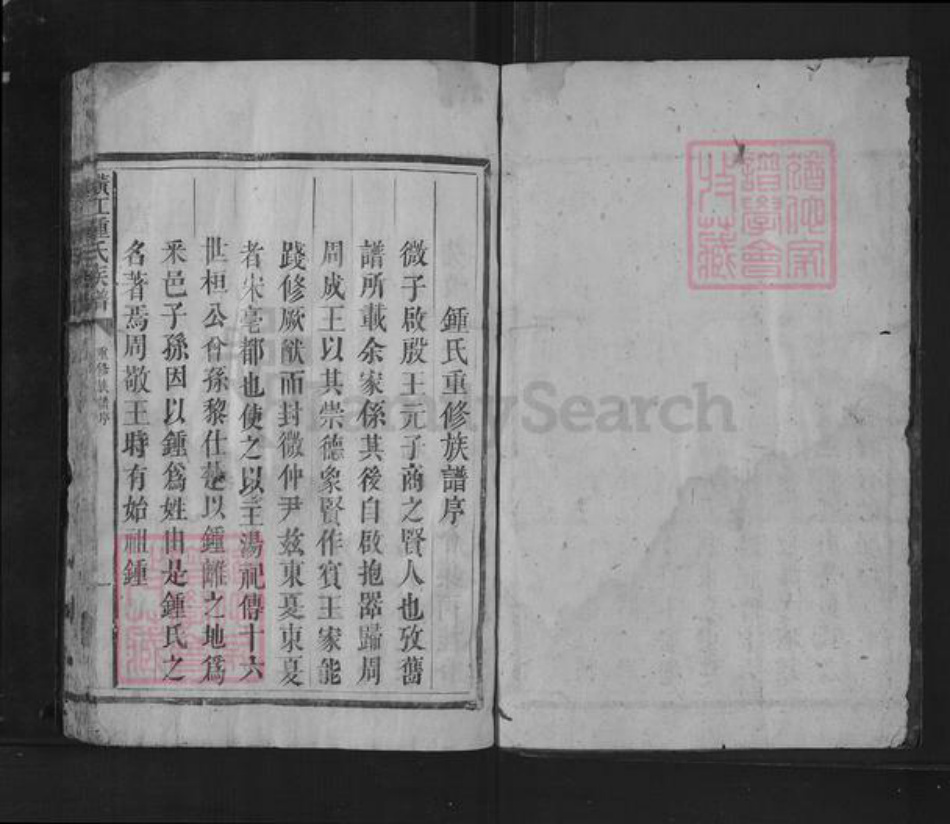 鍾氏重修族譜序
微子啟殷王元子商之賢人也攷舊
譜所載余家係其後自啟抱器歸周
周成王以其崇德象賢作賓王家能
踐修厥猷而封微仲尹玆東夏東夏
者宋亳都也使之以主湯祀傳十六
世桓公曾孫黎仕楚以鍾離之地爲
釆邑子孫因以鍾爲姓由是鍾氏之
名著焉周敬王時有始祖鍾
江鍾氏族譜
重修族譜序
一
譜學會
收藏
FamilySearch